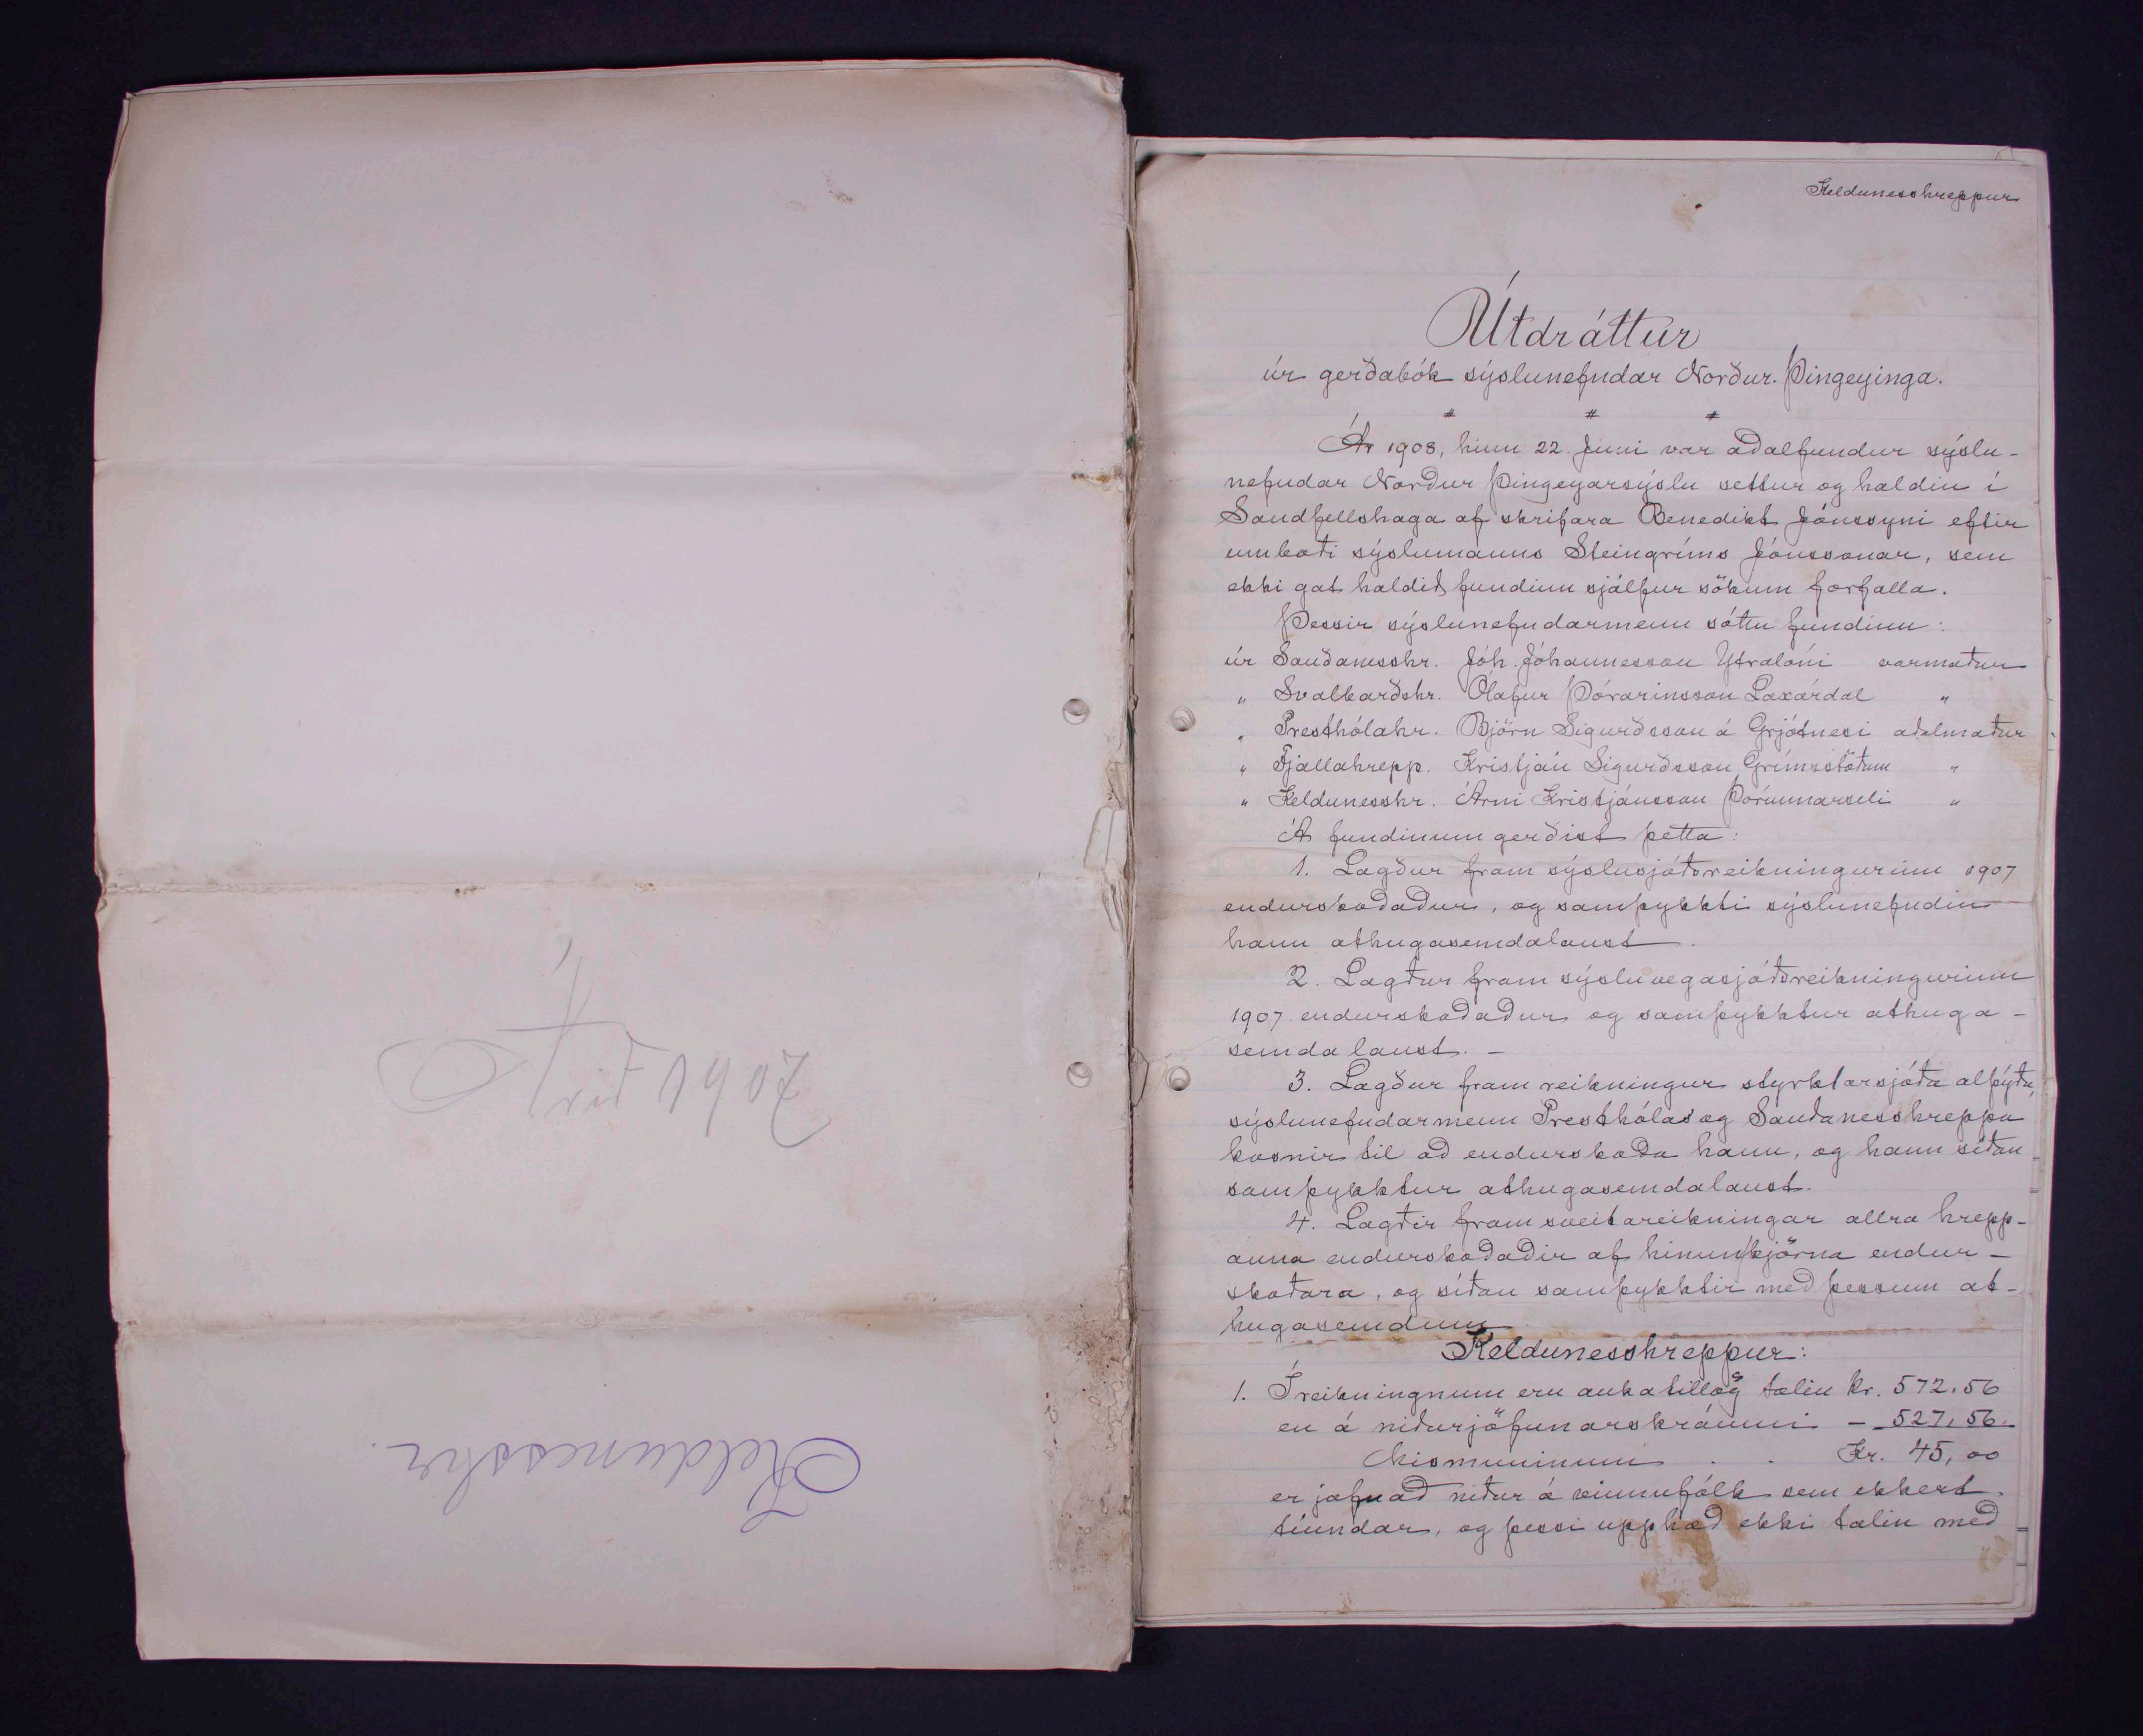 Árið 1907
Keldunesshr.
Keldunesshreppur
Útdráttur
úr gerðabók sýslunefndar Norður-Þingeyinga.
Ár 1908, hinn 22. Júni var aðalfundur sýslu-
nefndar Norður Þingeyarsýslu settur og haldin í
Sandfellshaga af skrifara Benedikt Jónssyni eftir
umboði sýslumanns Steingríms Jónssonar, sem
ekki gat haldið fundinn sjálfur sökum forfalla.
Þessir sýslunefndarmenn sóttu fundinn:
úr Sauðanesshr. Jóh. Jóhannesson Ytralóni varmaður
" Svalbarðshr. Ólafur Þórarinsson Laxárdal "
" Presthólahr. Björn Sigurðsson á Grjótnesi aðalmaður
" Fjallahrepp. Kristján Sigurðsson Grímsstöðum "
" Keldunesshr. Árni Kristjánsson Þórunnarseli "
Á fundinum gerðist þetta:
1. Lagður fram sýslusjóðsreikningurinn 1907
endurskoðaður, og samþykkti sýslunefndin
hann athugasemdalaust.
2. Lagður fram sýsluvegasjóðsreikningurinn
1907 endurskoðaður og samþykktur athuga-
semdalaust. -
3. Lagður fram reikningur styrktarsjóða alþýðu,
sýslunefndarmenn Presthólas og Sauðanesshreppa
kosnir til að endurskoða hann, og hann síðan
samþykktur athugasemdalaust.
4. Lagðir fram sveitareikningar allra hrepp-
anna endurskoðaðir af hinum kjörna endur-
skoðara, og síðan samþykktir með þessum at-
hugasemdum
Keldunesshreppur:
1. Í reikningnum eru aukatillög talin kr. 572,56
en á niðurjöfnunarskránni - 527,56.
Mismuninum . . Kr. 45,00
er jafnað niður á vinnufólk sem ekkert
tíundar, og þessi upphæð ekki talin með